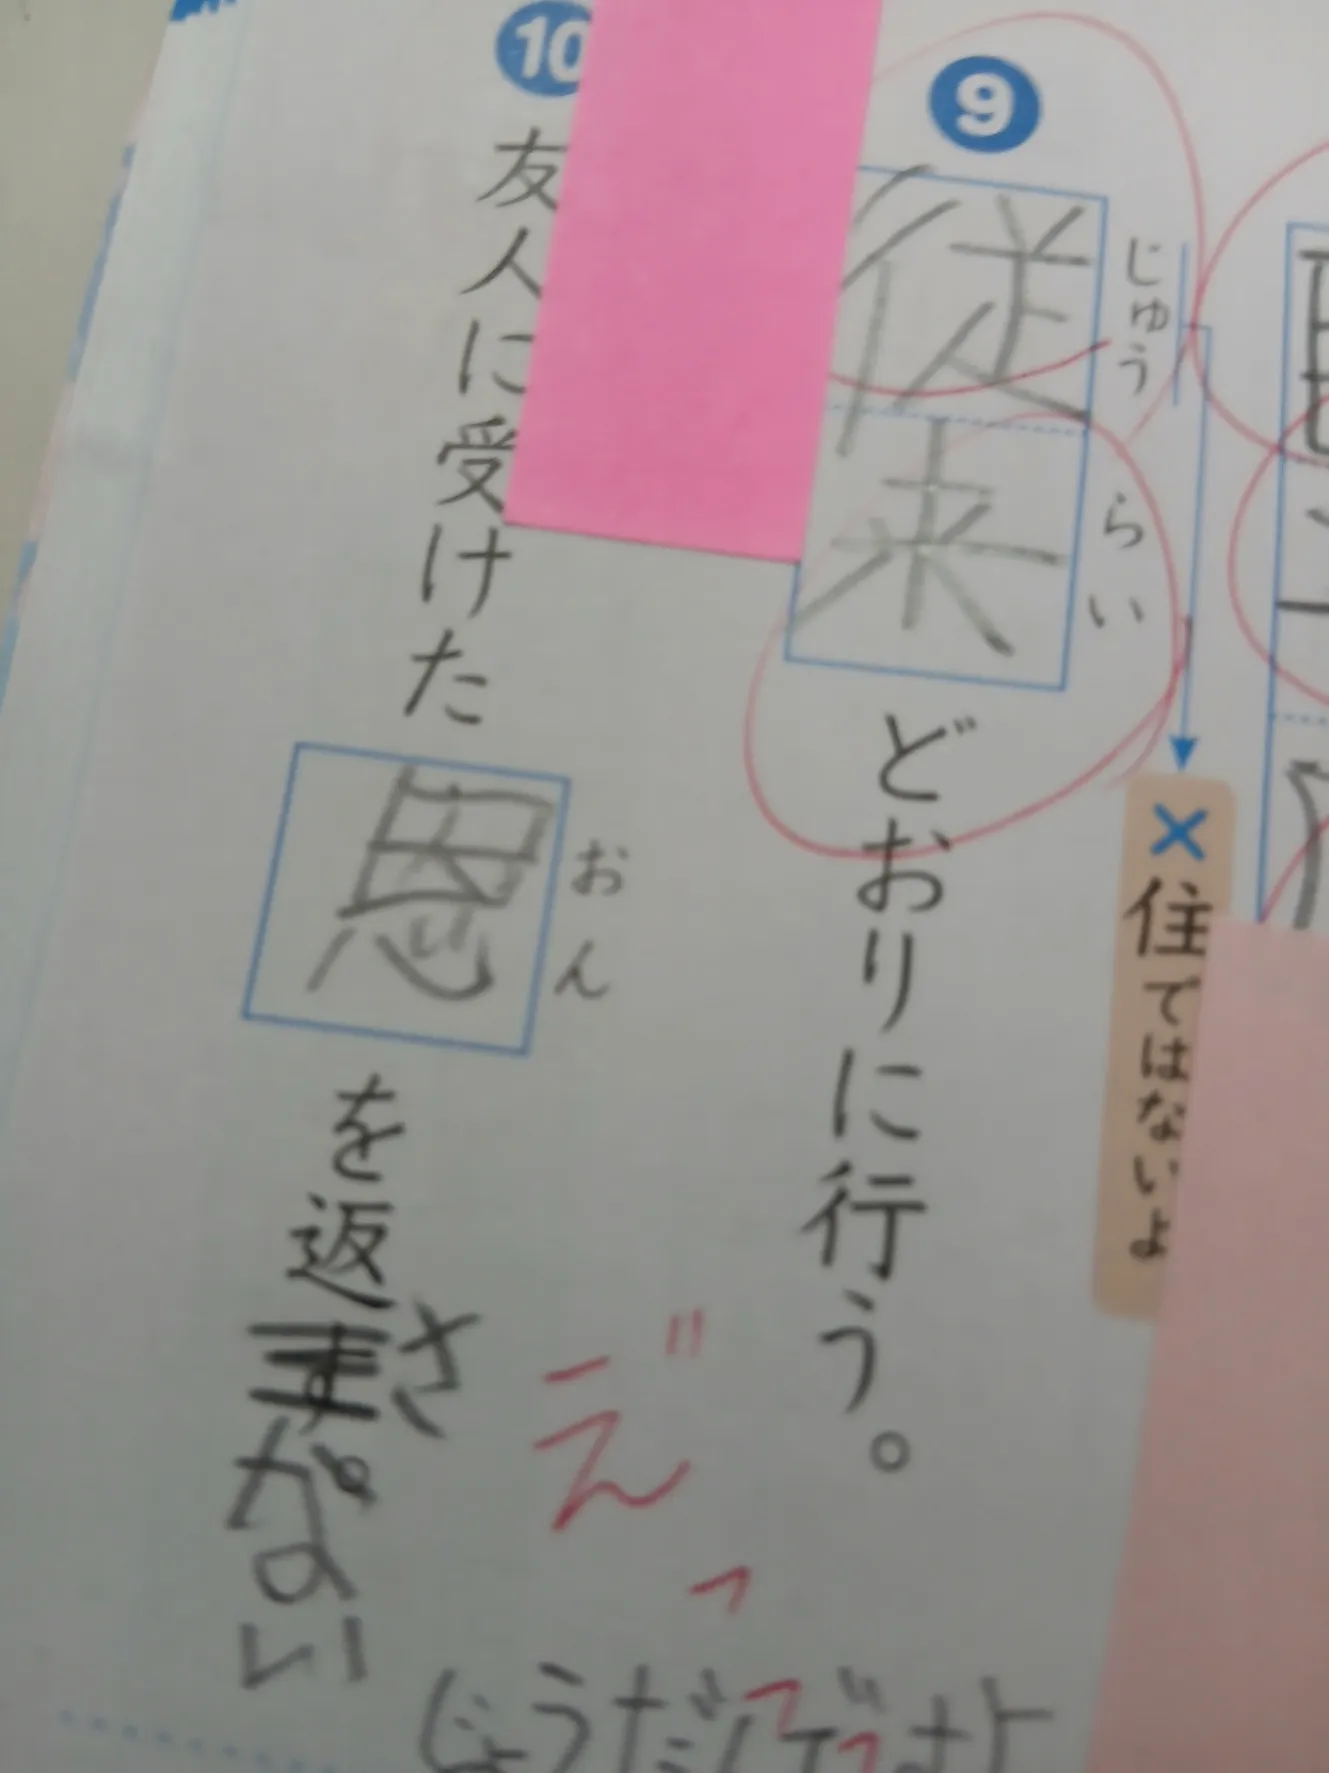 9
従来どおりに行う。
じゅう
らい
×住ではないよ
10
友人に受けた恩を返さない
おん
え゛っ
じょうだんでっすよ